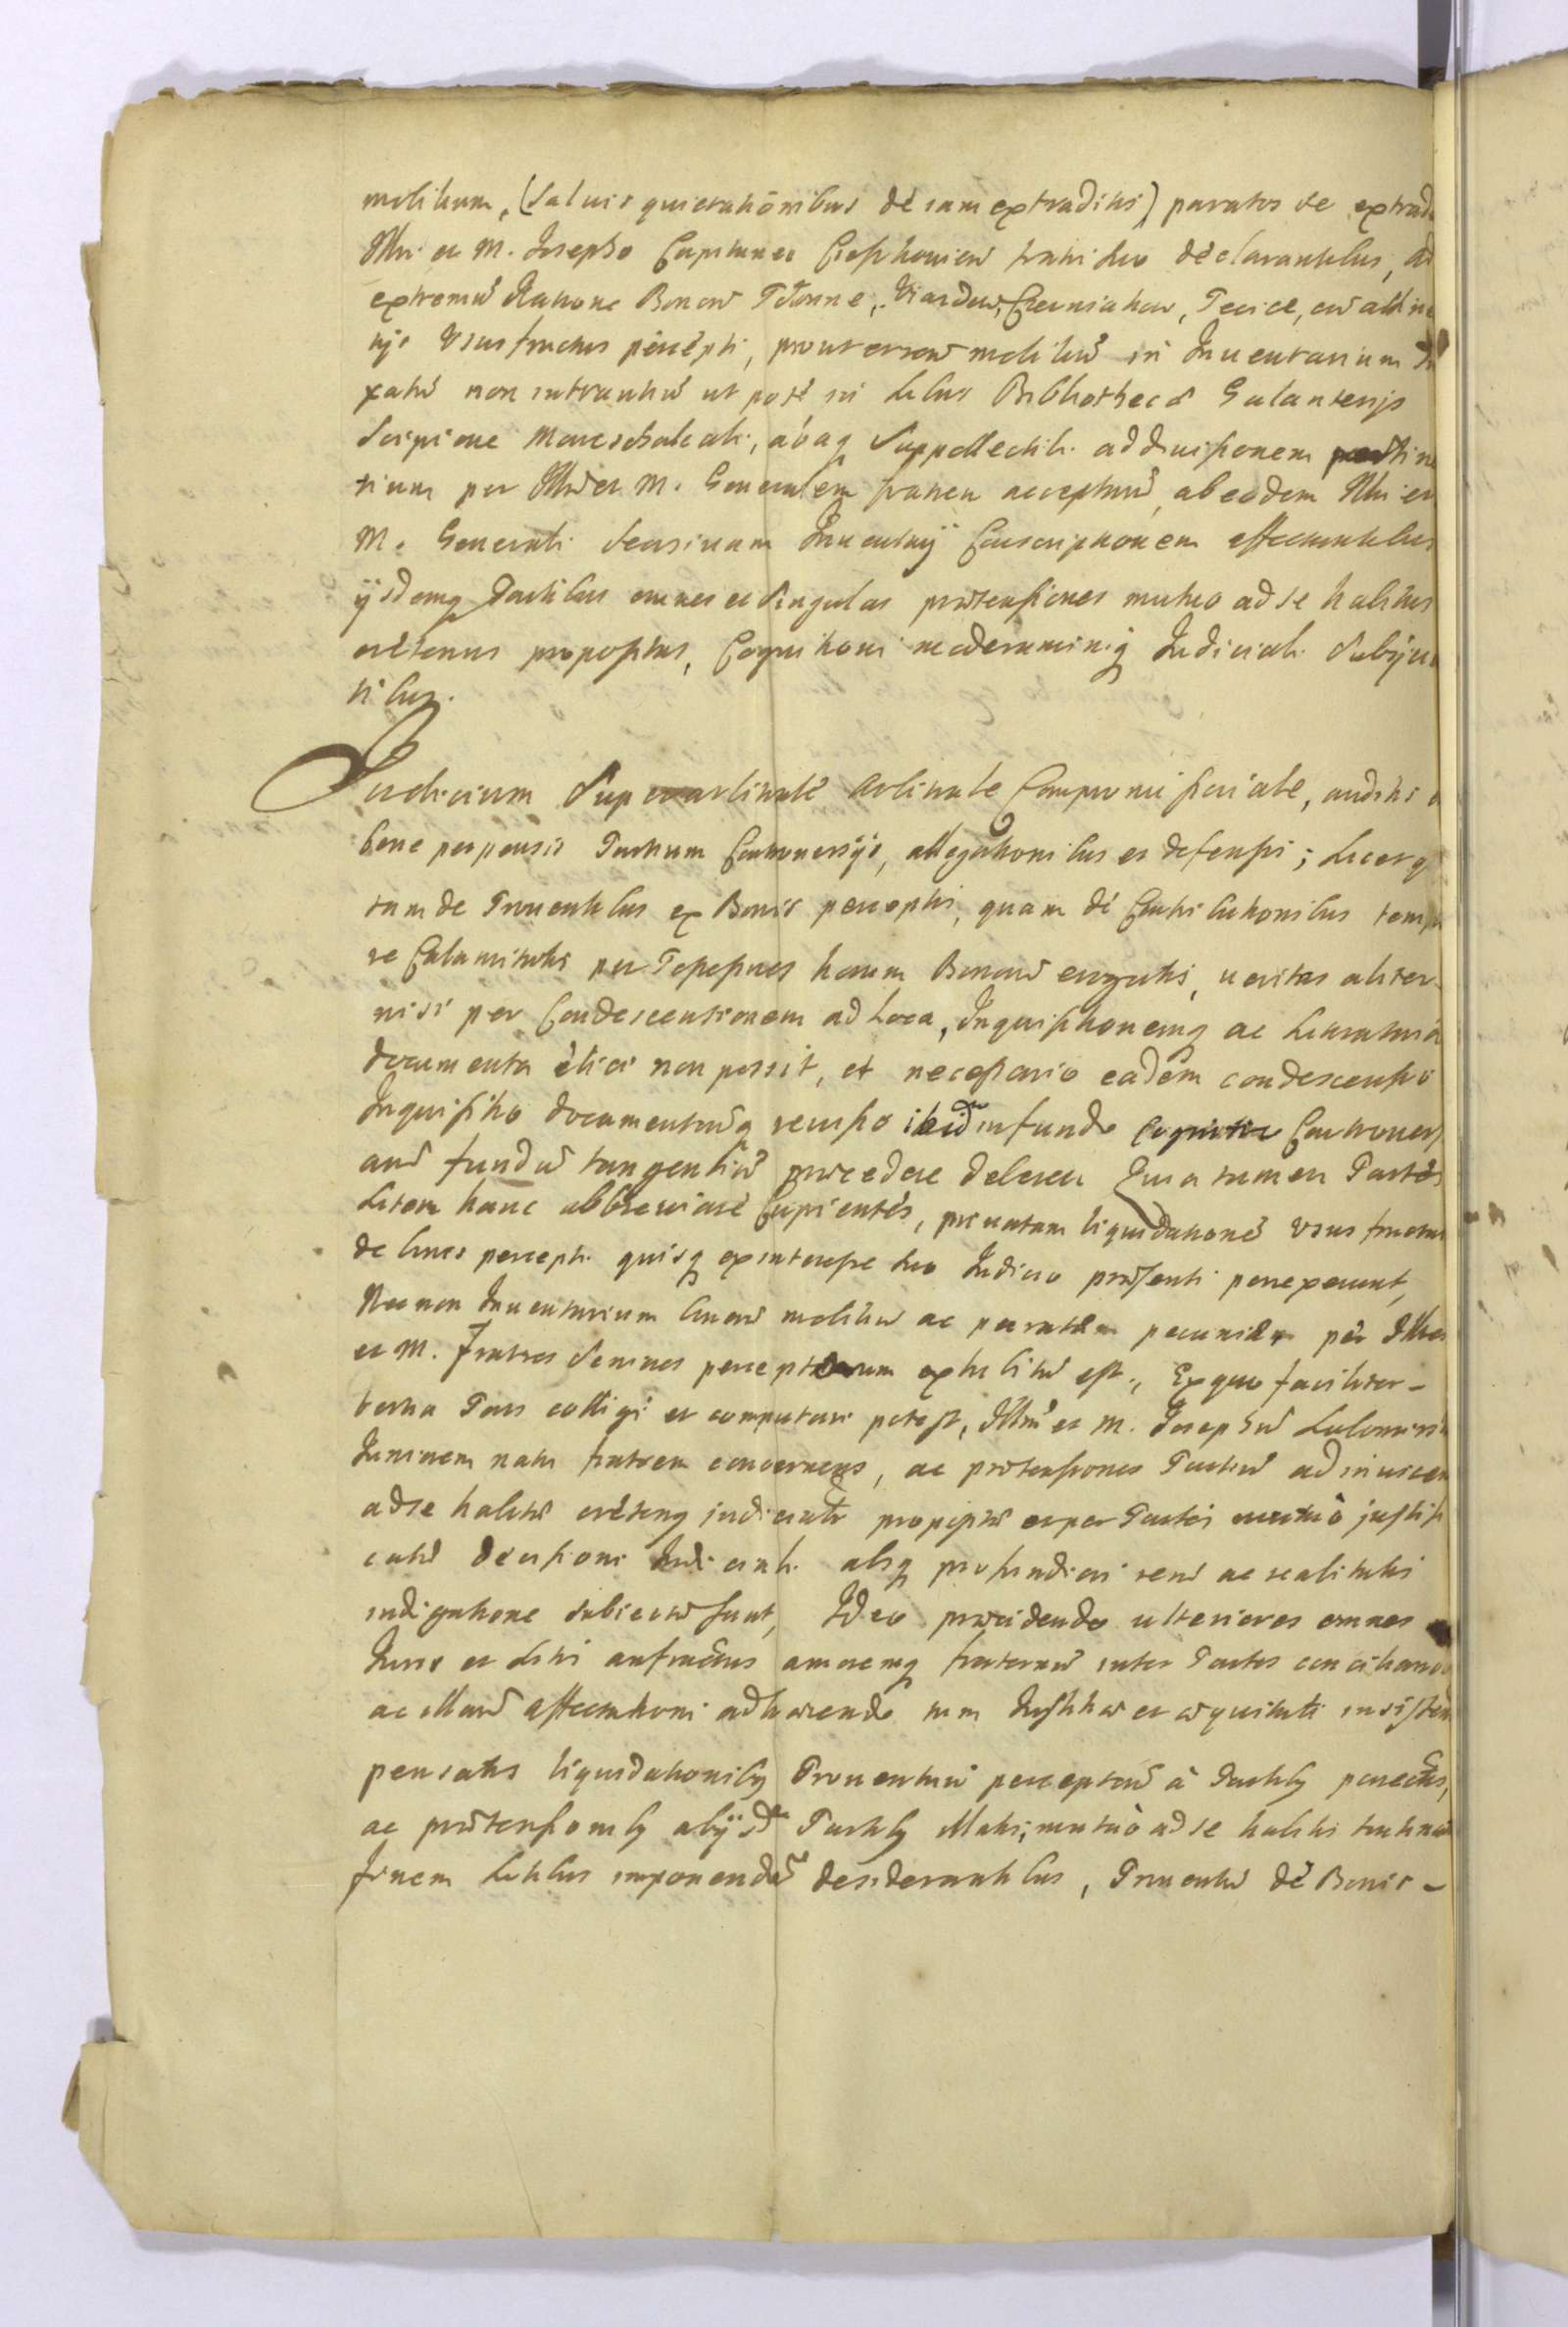 mobilium, (salvis quietationibus de iam extraditis) paratos se extrad
Illri et M. Josepho Capitaneo fratri suo declarantibus, ad
extremū Ratione Bonorū Czerniahow, Pecice, cū attin
tijs Ususfructus percepti, prout etiam mobiliū in Inventarium
non intrantiū ut pote in Libris Bibliotheca Galanterijs
Scipione Mareschalcali, aliaq Suppellectili ad divisionem pertine
tium per Illrē et M. Generalem fratrem acceptorū, ab eodem Illri et
M. Generali Inventarij Conscriptionem affectantibus
ijsdemq Partibus omnes et singulas praetensiones mutuo ad se habitas
propositas, Cognitioni moderaminiq Judiciali Subijcie
tibus.
Judicium Superarbitrale Arbitrale Compromissoriale, auditis
bene perpensis Partium Controversijs, allegationibus et defensis; Licet
tam de Proventibus ex Bonis perceptis, quam de Contributionibus temp
re Calamitatis per Possessores horum Bonorū erogatis, veritas aliter
nisi per Condescensionem ad Loca, Inquisitionemq ac Literatoria
documenta elici non possit, et necessario eadem condescensio
Inquisitio documentorūq revisio ibidē in fundo Controvers
arū fundū tangentiū praecedere deberet Quia tamen Partes
Litem hanc abbreviare Cupientes, privatam liquidationē Usus fructus
de bonis percepti quisq ex interesse suo Judicio praesenti porrexerunt,
Nec non Inventarium bonorū mobiliū ac paratae pecuniae per Illres
et M. Fratres Seniores perceptorum exhibitū est, Ex quo faciliter
tertia Pars colligi et computari potest, Illrē et M. Josephū Lubomirs
Juniorem natu fratrem concernens, ac praetensiones Partiū ad invicem
ad se habitae judicialr propositae et per Partes mutuo justifi
catae decisioni Judiciali absq profundiori rerū ac realitatis
indigatione subiectae sunt, Ideo praecidendo ulteriores omnes
Juris et Litis anfractus amoremq fraternū inter Partes conciliando
ac illarū affectationi adhaerendo tum Justitiae et aequitati insisten
pensatis liquidationibq Proventuū perceptorū à Partibq porrectis,
ac praetensionibq ab ijsdē Partibq illatis, mutuò ad se habitis
finem Litibus imponendū desiderantibus, Proventū de Bonis -